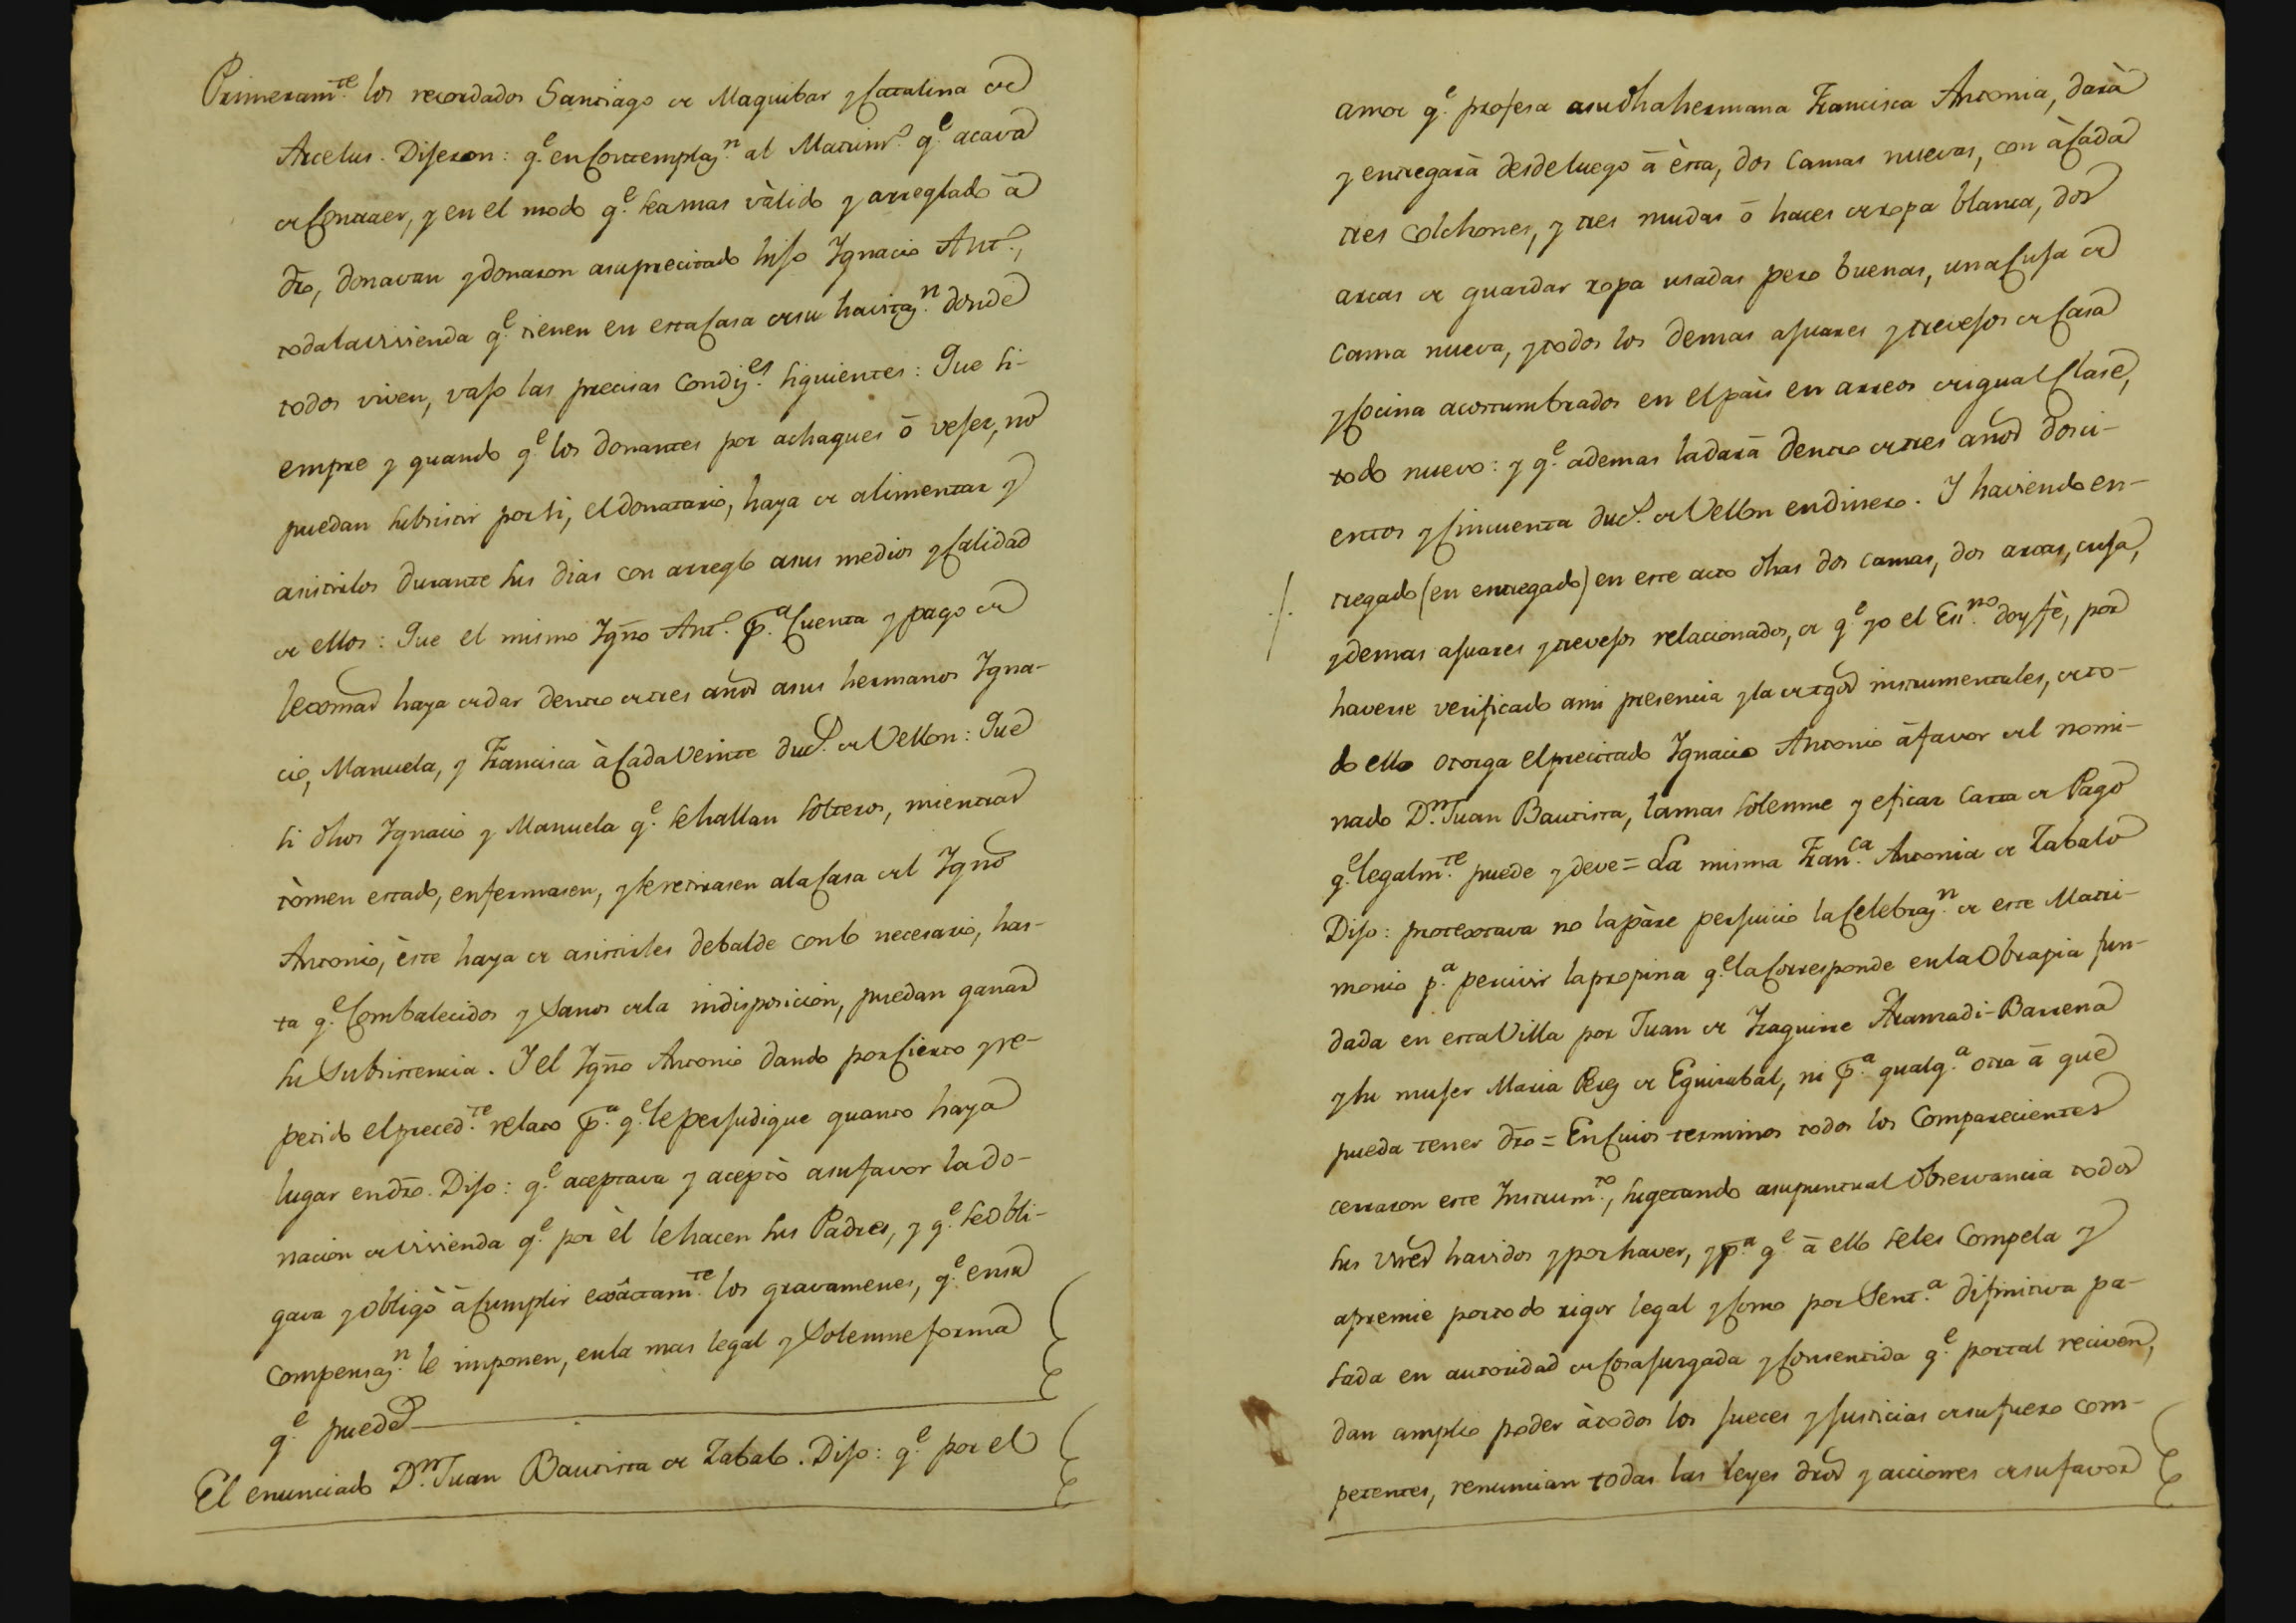 Primeram.te los recordados Santiago de Maquibar y Catalina de
Arcelus. Dijeron: q.e en Contemplaz.n al Matrim.o q.e acava
de Contraer, y en el modo q.e sea mas vàlido y arreglado â
dro, donavan y donaron a su precitado hijo Ignacio Ant.o,
toda la vivienda q.e tienen en esta Casa de su havitaz.n donde
todos viven, vajo las precisas Condiz.es siguientes: Que si-
empre y quando q.e los donantes por achaques ô vejez, no
puedan subsistir por si, el donatario, haya de alimentar y
asistirlos durante sus dias con arreglo a sus medios y Calidad
de ellos: Que el mismo Ign.o Ant.o p.a Cuenta y pago de
lexitimas haya de dar dentro de tres años a sus hermanos Igna-
cio, Manuela, y Francisca à Cada Veinte duc.s de Vellon: Que
si dhos Ignacio y Manuela q.e se hallan solteros, mientras
tòmen estado, enfermasen, y se retirasen a la Casa del Ign.o
Antonio, èste haya de asistirles debalde con lo necesario, has-
ta q.e Combalecidos y Sanos de la indisposicion, puedan ganar
su Subsistencia. Y el Ign.o Antonio dando por Cierto y re-
petido el preced.te relato p.a q.e le perjudique quanto haya
lugar en dro. Dijo: q.e aceptava y aceptò a su favor la do-
nacion de vivienda q.e por èl le hacen sus Padres, y q.e se obli-
gava y obligò â Cumplir exâctam.te los gravamenes, q.e en su
Compensaz.n le imponen, en la mas legal y Solemne forma
q.e puede
El enunciado D.n Juan Bautista de Zabalo. Dijo: q.e por el
amor q.e profesa a su dha hermana Francisca Antonia, darà
y entregarà desde luego â èsta, dos Camas nuevas, con à Cada
tres colchones, y tres mudas ô haces de ropa blanca, dos
arcas de guardar ropa usadas pero buenas, una Cuja de
Cama nueva, y todos los demas ajuares y trevejos de Casa
y Cocina acostumbrados en el paìs en arreos de igual Clase,
todo nuevo: y q.e ademas la darâ dentro de tres años dosci-
entos y Cincuenta duc.s de Vellon en dinero. Y haviendo en-
tregado (en entregado) en este acto dhas dos camas, dos arcas, cuja,
y demas ajuares y trevejos relacionados, de q.e yo el Ess.no doy fè, por
haverse verificado a mi presencia y la de tgos instrumentales, de to-
do ello otorga el precitado Ignacio Antonio â favor del nomi-
nado D.n Juan Bautista, la mas solemne y eficaz Carta de Pago
q.e legalm.te puede y deve = La misma Fran.ca Antonia de Zabalo
Dijo: protextava no la pàre perjuicio la Celebraz.n de este Matri-
monio p.a percivir la propina q.e la Corresponde en la Obrapia fun-
dada en esta Villa por Juan de Yraguirre Aramradi-Barrena
y su mujer Maria Perez de Eguizabal, ni p.a qualq.a otra â que
pueda tener dro = En Cuios terminos todos los Comparecientes
cerraron este Instrum.to, sugetando a su puntual Observancia todos
sus Vnes havidos y por haver, y p.a q.e â ello se les Compela y
apremie por todo rigor legal y Como por Sent.a difinitiva pa-
sada en autoridad de Cosa juzgada y Consentida q.e por tal reciven,
dan amplio poder à todos los jueces y justicias de su fuero com-
petentes, renuncian todas las leyes dros y acciones de su favor